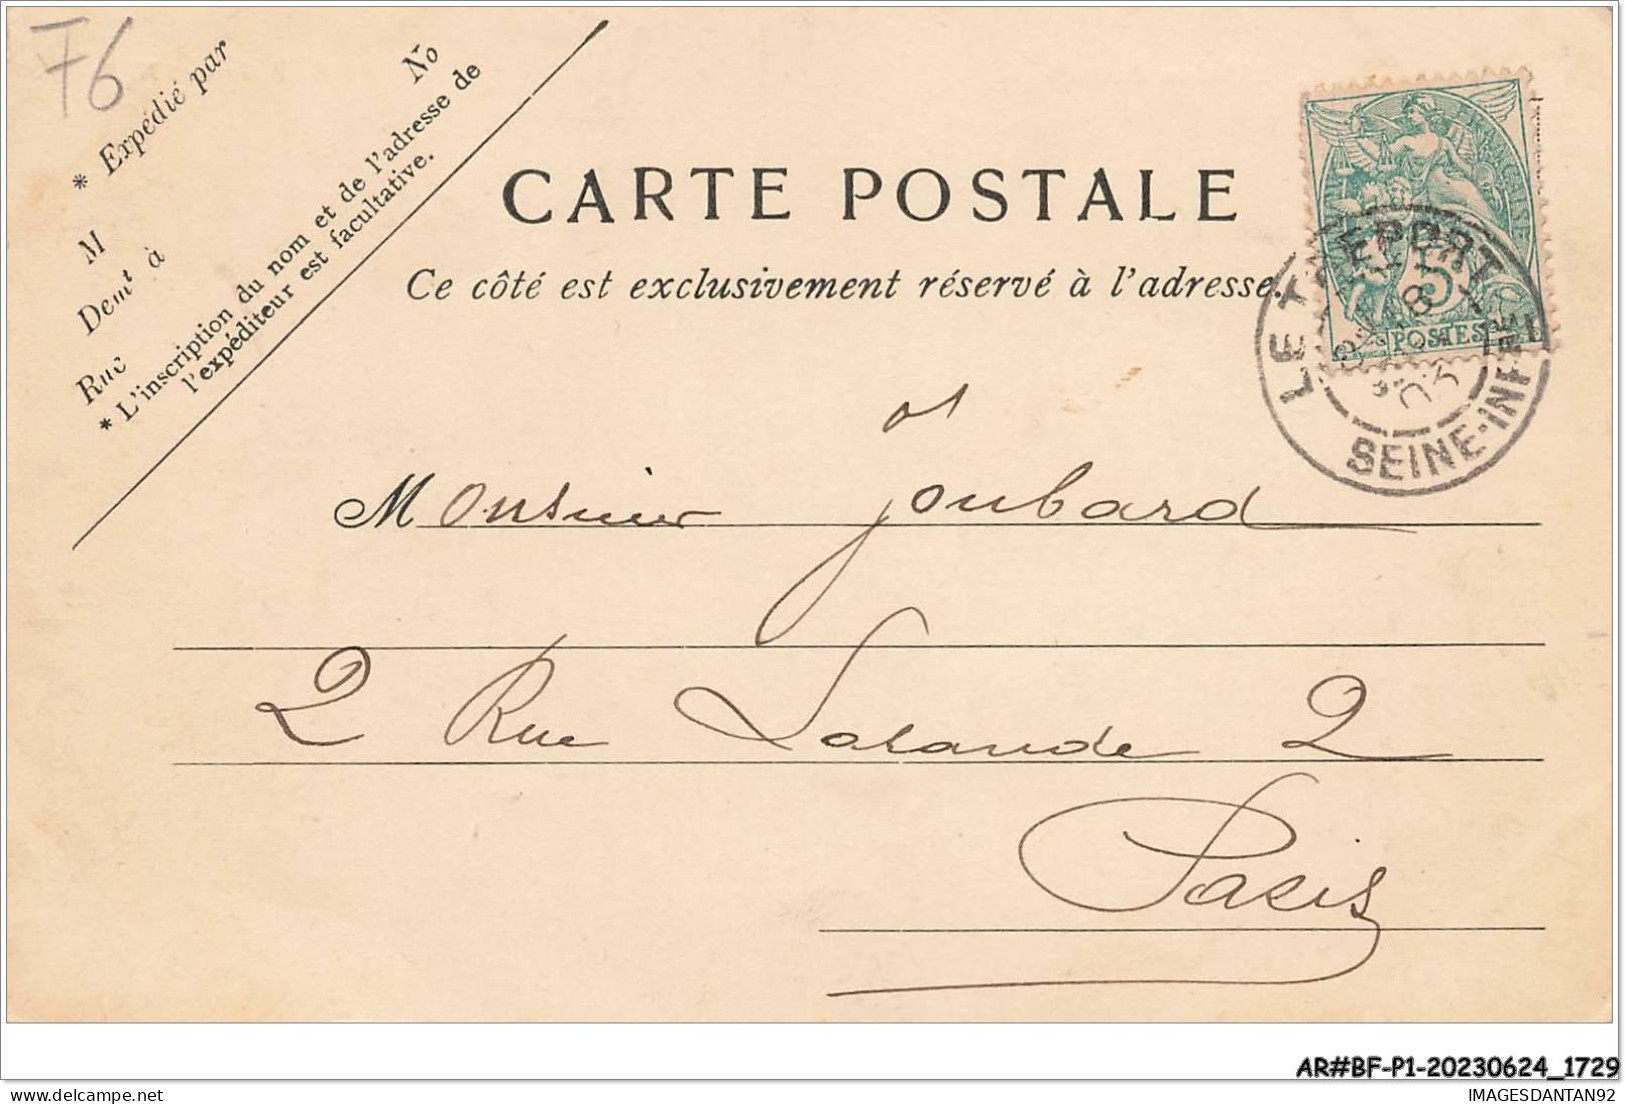 F6
* Expédié par
M
Demt à
Rue
No
* L'inscription du nom et de l'adresse de
l'expéditeur est facultative.
CARTE POSTALE
Ce côté est exclusivement réservé à l'adresse.
POSTES
5
LE TREPORT
SEINE-INFRE
Monsieur Joubard
2 Rue Lalande 2
Paris
AR#BF-P1-20230624_1729
IMAGESDANTAN92